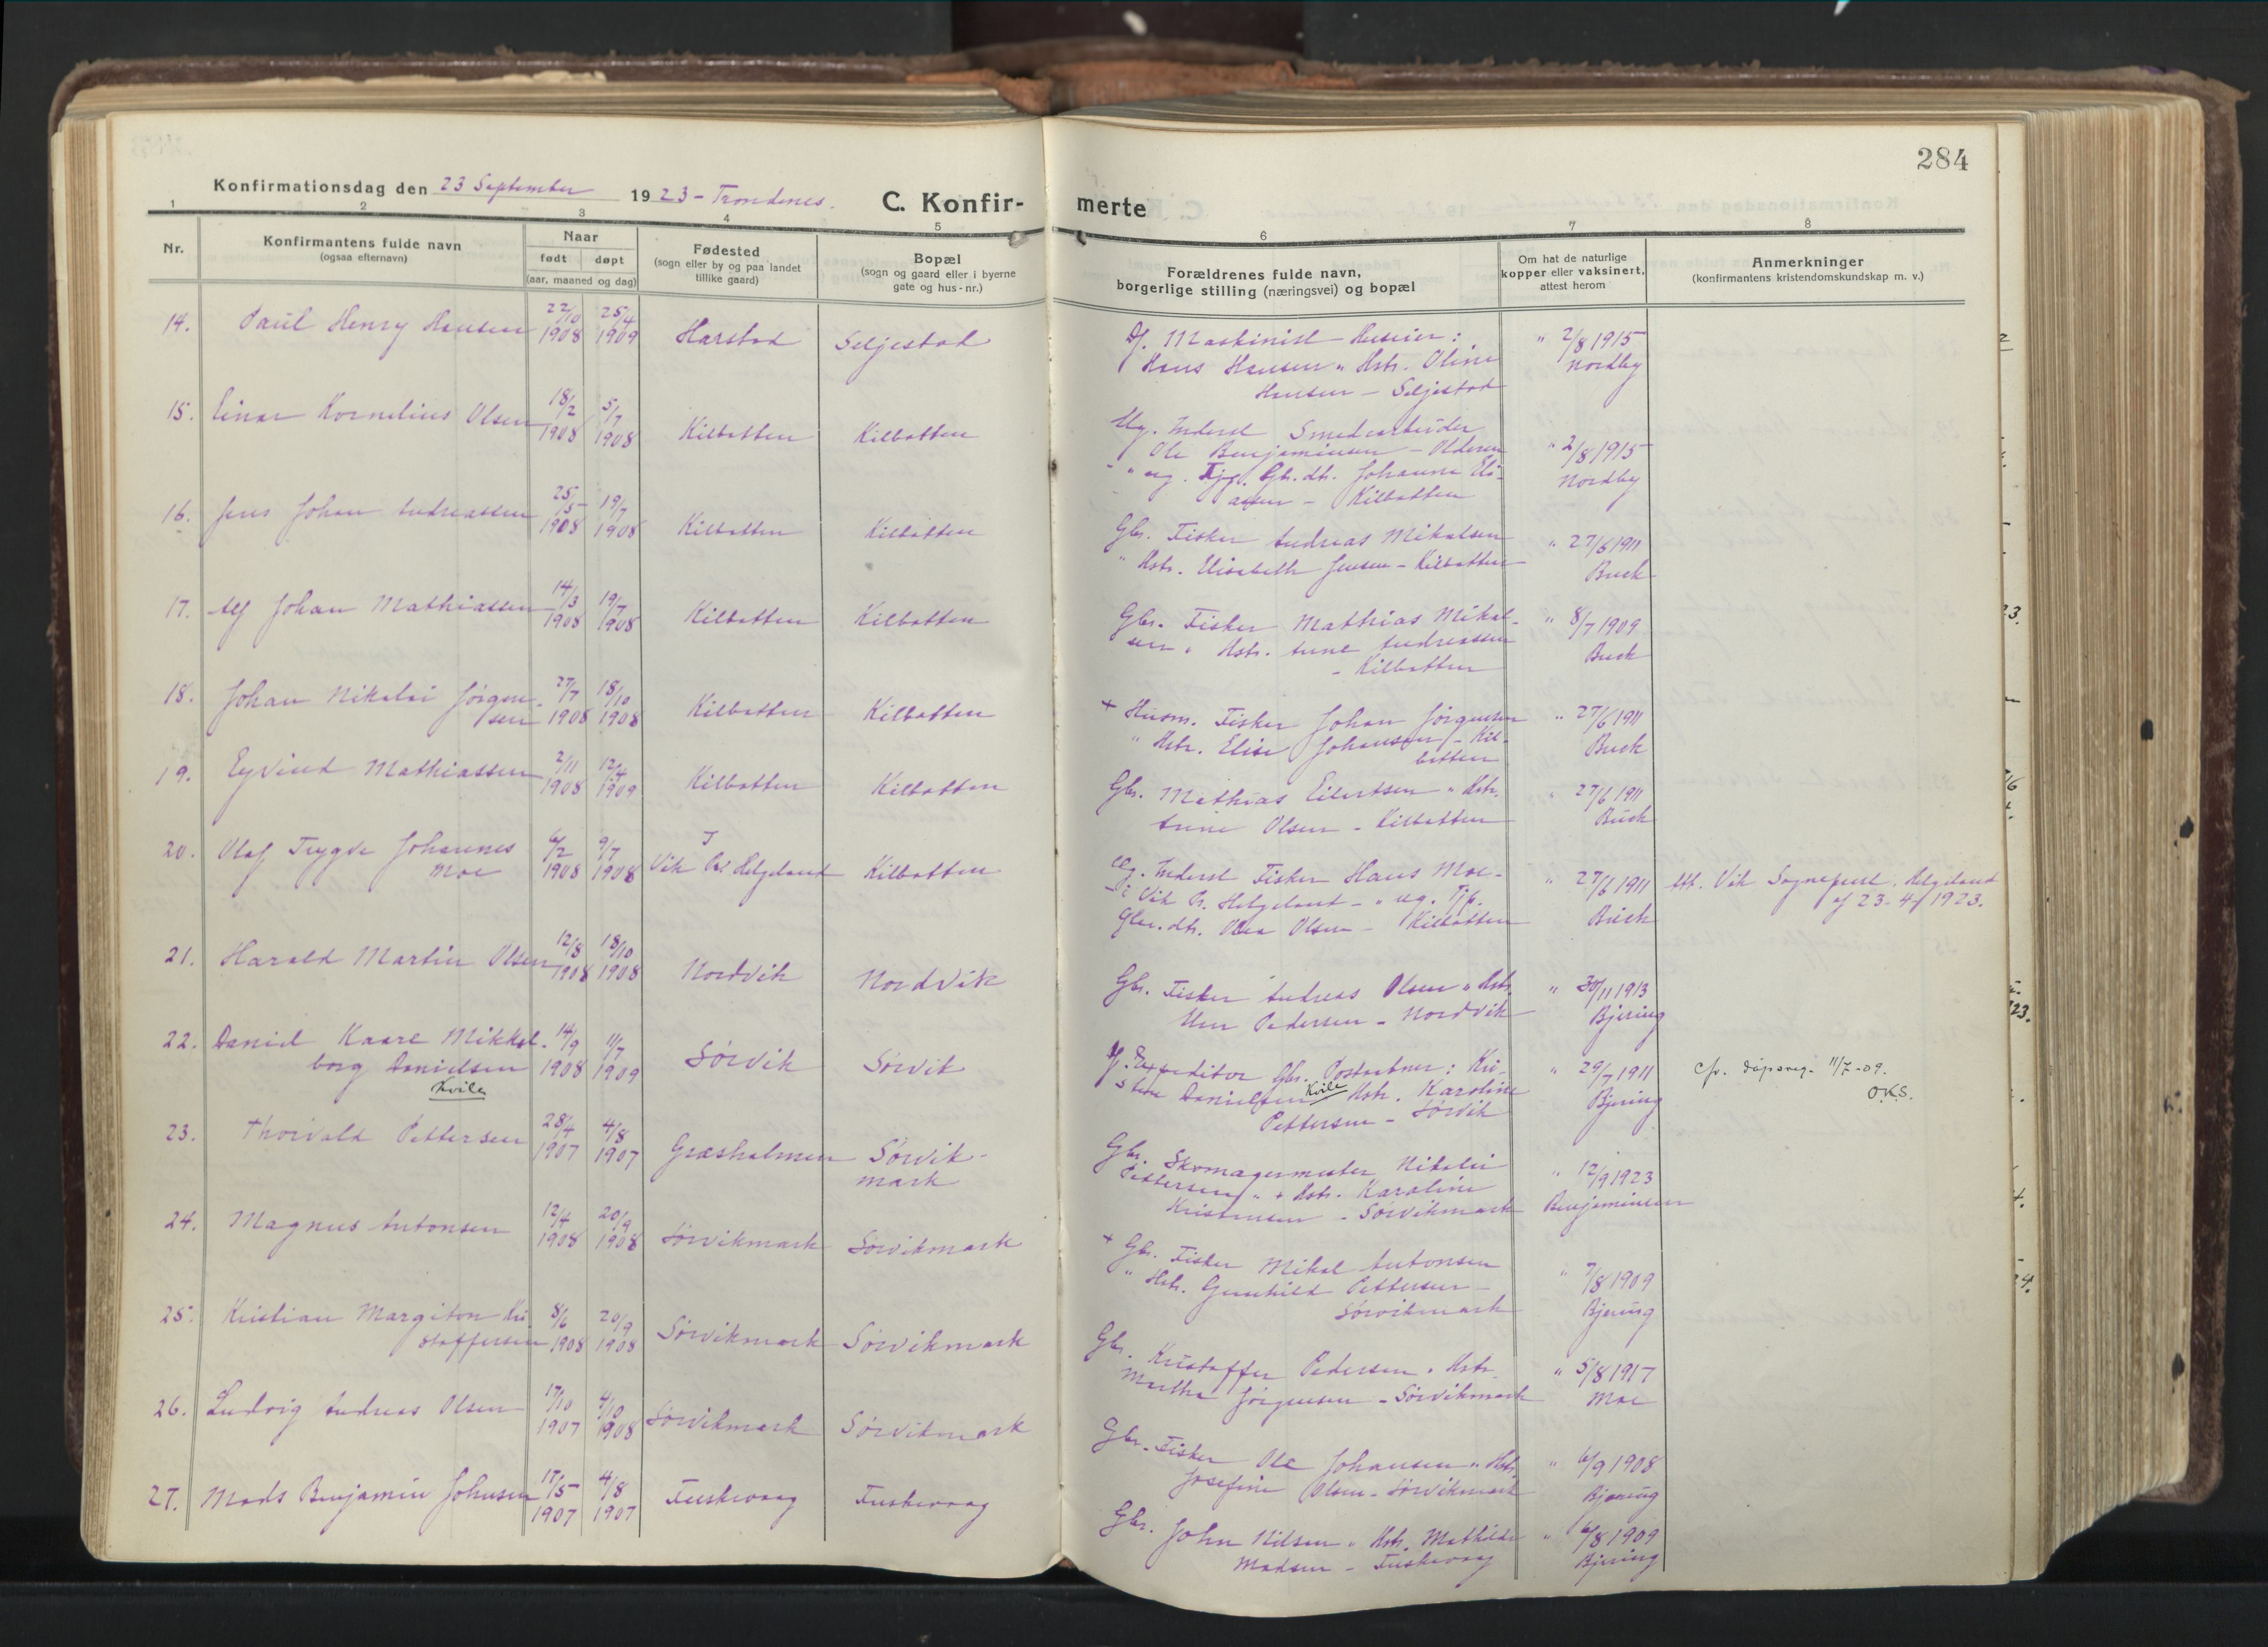 284
Konfirmationsdag den 23 September 1923 - Trondenes.
C. Konfir-
merte
1 2 3 4 5 6 7 8
Nr.
Konfirmantens fulde navn
(ogsaa efternavn)
Naar
født døpt
(aar, maaned og dag)
Fødested
(sogn eller by og paa landet
tillike gaard)
Bopæl
(sogn og gaard eller i byerne
gate og hus-nr.)
Forældrenes fulde navn,
borgerlige stilling (næringsvei) og bopæl
Om hat de naturlige
kopper eller vaksinert,
attest herom
Anmerkninger
(konfirmantens kristendomskundskap m. v.)
14. Paul Henry Hansen 22/10 1908 25/4 1909 Harstad Seljestad
Maskinist Huseier:
Hans Hansen " Hstr. Oline
Hansen - Seljestad
" 2/8 1915
Nordby
15. Einar Kornelius Olsen 18/2 1908 5/7 1908 Kilbotten Kilbotten
Ug. Inderst Smedarbeider
Ole Benjaminsen - Olderen
" ug. Tjp. Gbr.dtr. Johanna Eli-
assen - Kilbotten
" 2/8 1915
Nordby
16. Jens Johan Andreassen 25/5 1908 19/7 1908 Kilbotten Kilbotten
Gbr. Fisker Andreas Mikalsen
" Hstr. Elisabeth Jensen - Kilbotten
" 27/6 1911
Buck
17. Alf Johan Mathiassen 14/3 1908 19/7 1908 Kilbotten Kilbotten
Gbr. Fisker Mathias Mikal-
sen " Hstr. Anne Andreassen
- Kilbotten
" 8/7 1909
Buck
18. Johan Nikolai Jørgen-
sen 27/7 1908 18/10 1908 Kilbotten Kilbotten
+ Husm. Fisker Johan Jørgensen
" Hstr. Elise Johansen - Kil-
botten
" 27/6 1911
Buck
19. Eyvind Mathiassen 2/11 1908 12/4 1909 Kilbotten Kilbotten
Gbr. Mathias Eilertsen " Hstr.
Anne Olsen - Kilbotten
" 27/6 1911
Buck
20. Olaf Trygve Johannes
Moe 6/2 1908 9/7 1908 Vik Helgeland Kilbotten
Ug. Inderst Fisker Hans Moe -
i Vik P. Helgeland - " ug. Tjp.
Gbr.dtr. Olea Olsen - Kilbotten
" 27/6 1911
Buck
Att. Vik Sogneprest. Helgeland
af 23-4 1923.
21. Harald Martin Olsen 12/8 1908 18/10 1908 Nordvik Nordvik
Gbr. Fisker Andreas Olsen " Hstr.
Pedersen - Nordvik
" 30/11 1913
Bjering
22. Daniel Kaare Mikkel-
borg Danielsen 14/9 1908 11/7 1909 Sørvik Sørvik
Kvile
Expeditør Gbr. Postaabner: Kri-
sten Danielsen Kvile Hstr. Karoline
Pettersen - Sørvik
" 29/7 1911
Bjering
cfr. dåpsreg. 11/7-09.
O.K.S.
23. Thorvald Pettersen 28/4 1907 4/8 1907 Græsholmen Sørvik-
mark
Gbr. Skomagermester Nikolai
Pettersen " + Hstr. Karoline
Kristensen - Sørvikmark
" 12/9 1923
Benjaminsen
24. Magnus Antonsen 12/4 1908 20/9 1908 Sørvikmark Sørvikmark
+ Gbr. Fisker Mikal Antonsen
" Hstr. Gunhild Pettersen -
Sørvikmark
" 7/8 1909
Bjering
25. Kristian Margiton Kri-
stoffersen 8/6 1908 20/9 1908 Sørvikmark Sørvikmark
Gbr. Kristoffer Pedersen " Hstr.
Martha Jørgensen - Sørvikmark
" 5/8 1917
Moe
26. Ludvig Andreas Olsen 17/10 1907 4/10 1908 Sørvikmark Sørvikmark
Gbr. Fisker Ole Johansen " Hstr.
Josefine Olsen - Sørvikmark
" 6/9 1908
Bjering
27. Mads Benjamin Johnsen 17/5 1907 4/8 1907 Fuskevaag Fuskevaag
Gbr. John Nilsen " Hstr. Mathilde
Madsen - Fuskevaag
" 6/8 1909
Bjering